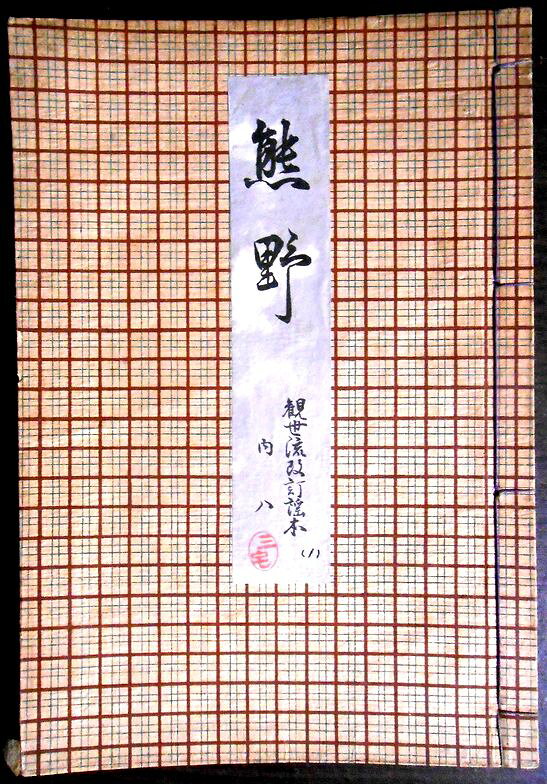 熊野
観世流改訂謡本
(1)
内 八
三宅